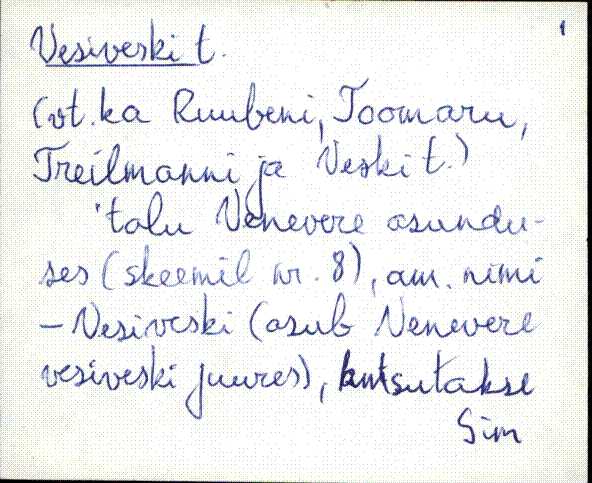 1
Vesiveski t.
(vt. ka Ruubeni, Toomaru,
Treilmanni ja Veski t.)
'talu Venevere asundu-
ses (skeemil nr. 8), am. nimi
- Vesiveski (asub Venevere
vesiveski juures), kutsutakse
Sim